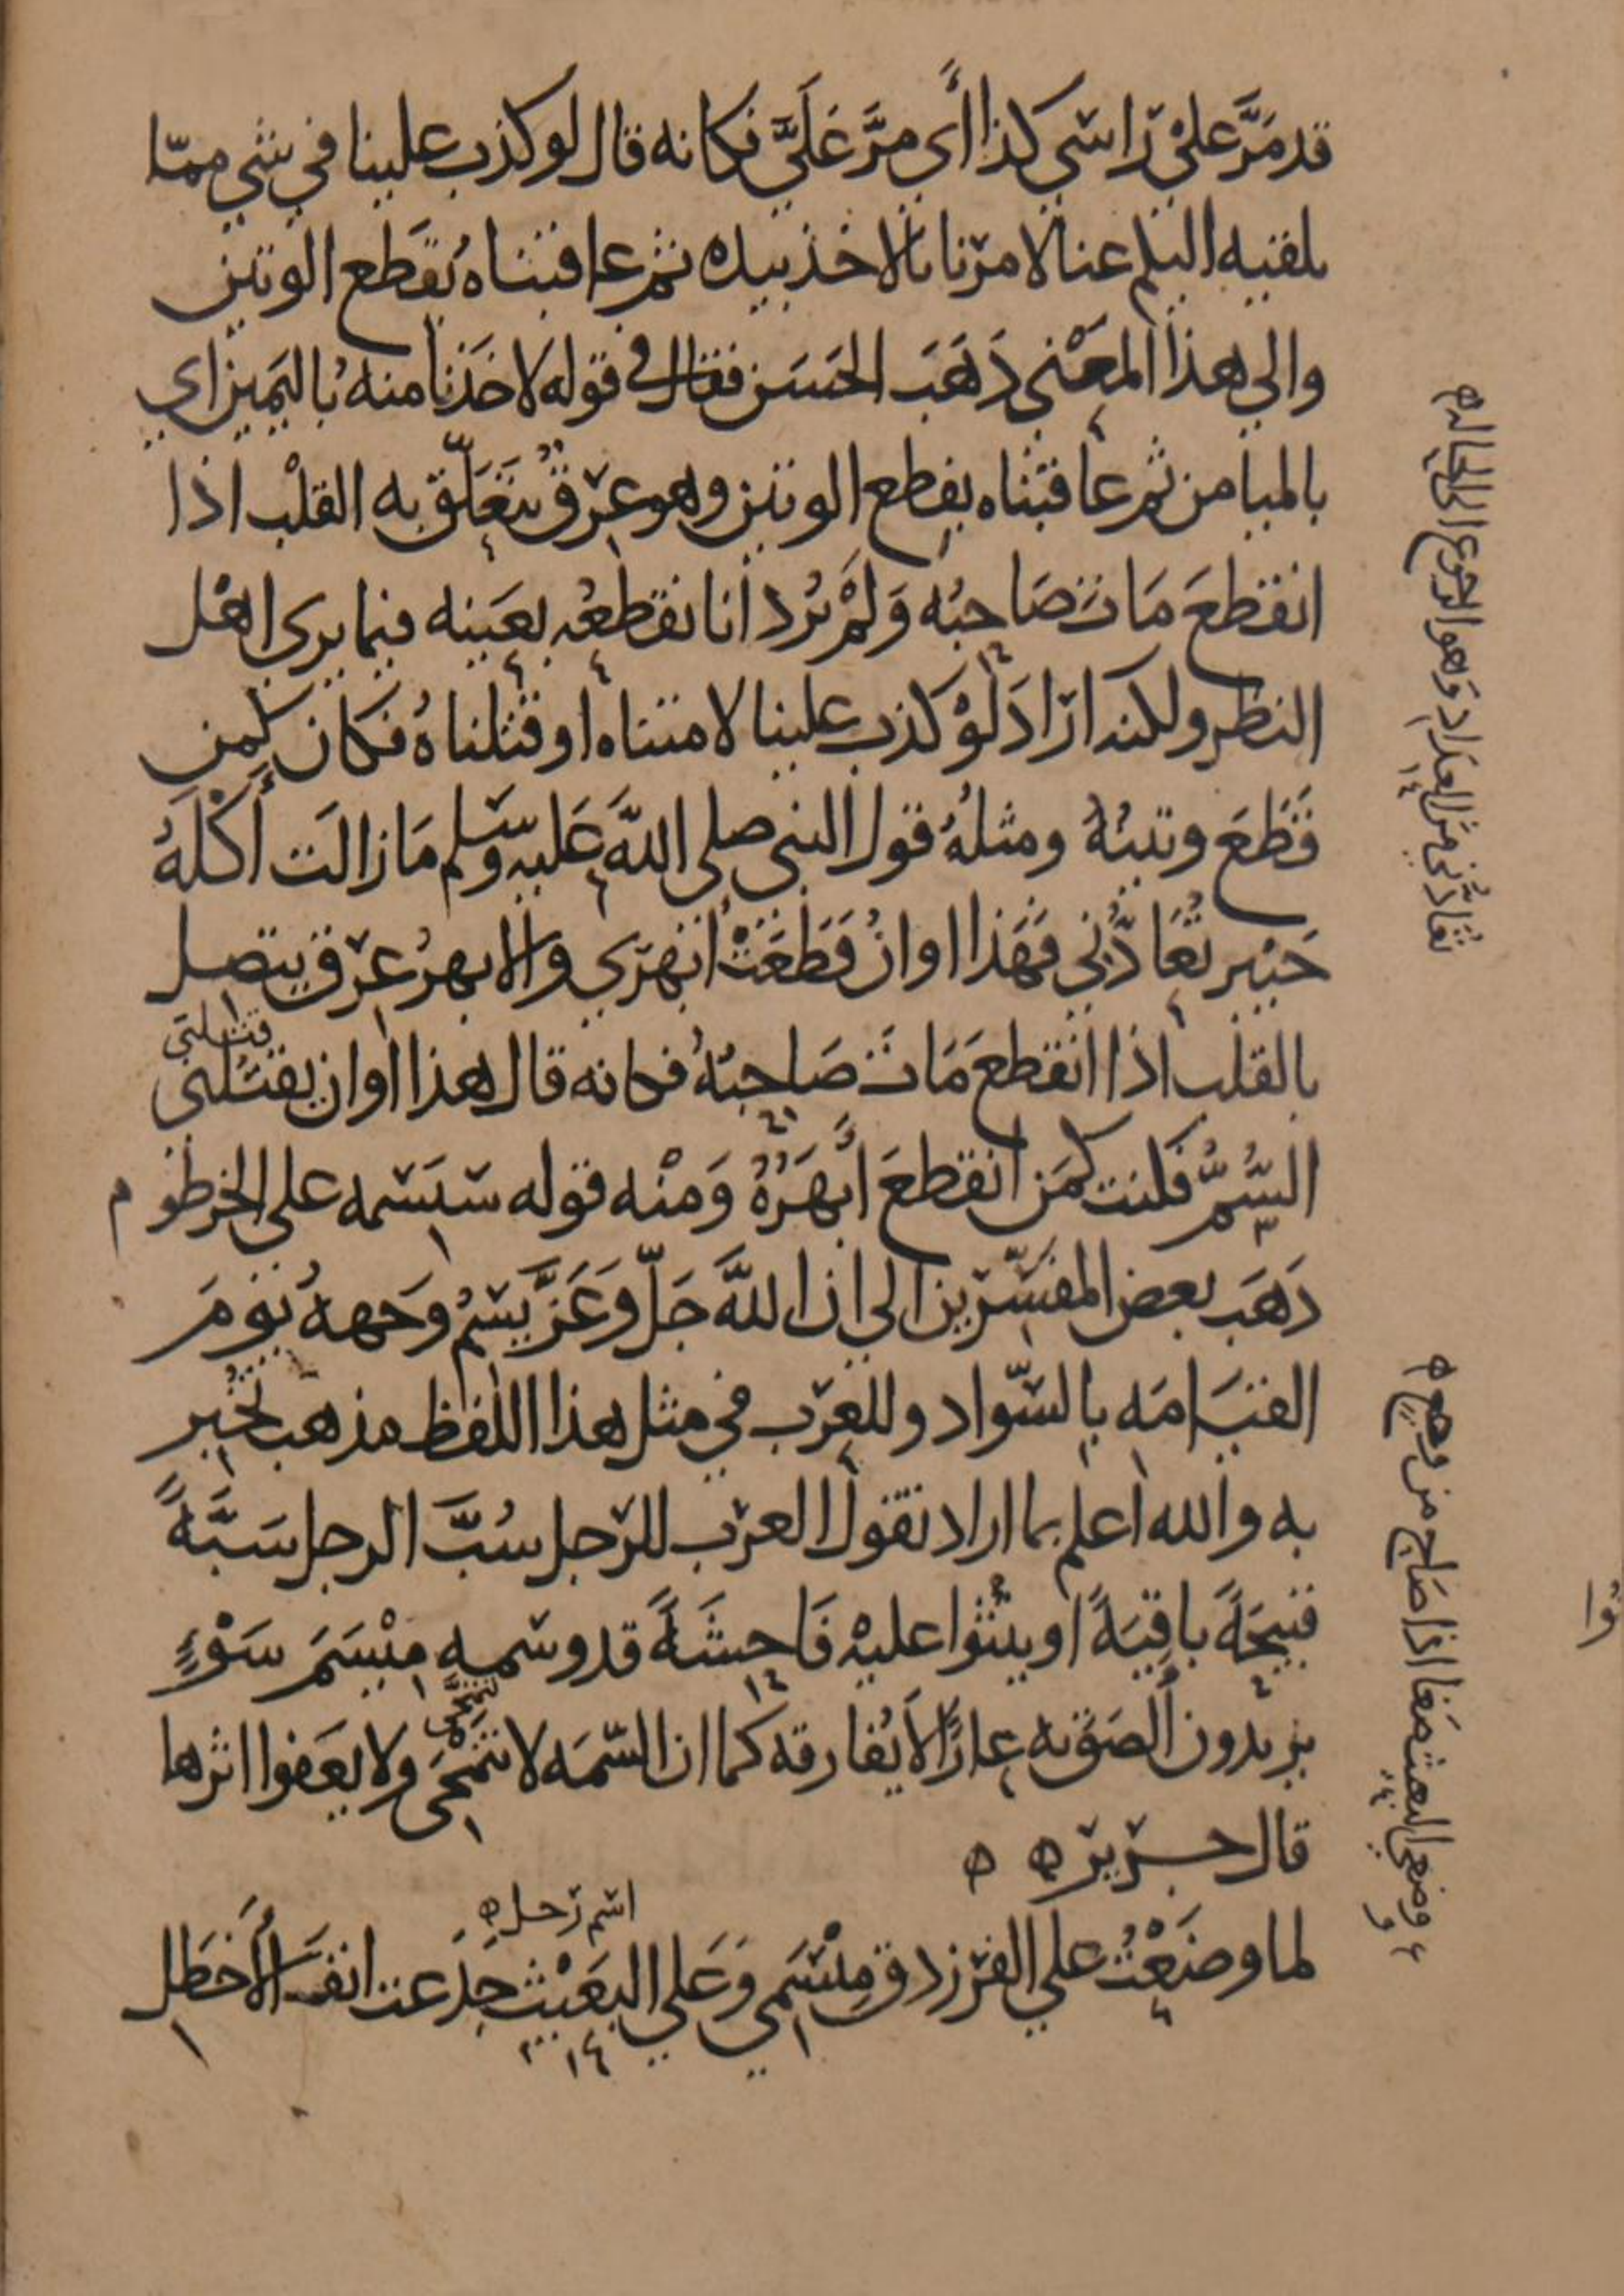 قد مَرَّ علي راسي كذا أي مرَّ عَلَيَّ فكانه قال لو كذب علينا في شي ممّا
يلقيه اليكم عنا لامرنا بالاخذ بيده ثم عاقبناه بقطع الوتين
والي هذا المعنى ذهَبَ الحَسَن فقال في قوله لاخَذنا منه باليَمين اي
بالميامن ثم عاقبناه بقطع الوتين وهو عرقٌ يتعَلّق به القلْب اذا
انقطعَ مَات صَاحبُه وَلمْ يُرد انا نقطعُه بعَينه فيما يري اهْل
النظر ولكنه ارادَ لوْ كذب علينا لامتناه او قتلناهُ فكان كمن
قطعَ وتينُهُ ومثلهُ قول النبي صلى اللهَ عَليه وسَلم مَا زالَت أكلَهُ
خَيْبر تُعَادُّني فهَذا اوانُ قطعَتْ ابْهَري والابهرُ عرق يتصل
بالقلب اذا انقطعَ مَات صَاحبُهُ فكانه قال هذا اوان يقتُلني
قتلني
السُّمُّ فكنت كمَن انقطعَ أبْهَرُهُ وَمنْه قوله سَنَسمه على الخرطوم
ذهَبَ بعض المفسّرين الي ان اللهَ جَلّ وَعَزَّ يَسمُ وجههُ يومَ
القيَامَه بالسّواد وللعَرَب في مثل هذا اللفظ مذهب نخُبر
به والله اعلم بما اراد تقول العرَب للرّجل سُبَّ الرجل سَبَّةً
قبيحَةً باقيَةً او يثنُوا عليْه فَاحشَةً قد وسَمه ميْسَمَ سَوْءٍ
يريدون ألصَق به عارًا لا يُفارقه كما ان السّمَه لا تنمحَى ولا يعَفوا اثرها
تتمحَّى
قال جرير ه ه
اسم رجل ه
لما وضَعْتُ علي الفرزدق مِيْسَمي وَعَلي البَعيْث جَدَعت انفَ الأخطَل
تعَادُّني من العداد وهو الرجوع الى الحاله ه
وضعى البعث ضغا اذا صَاح من وجعٍ ه